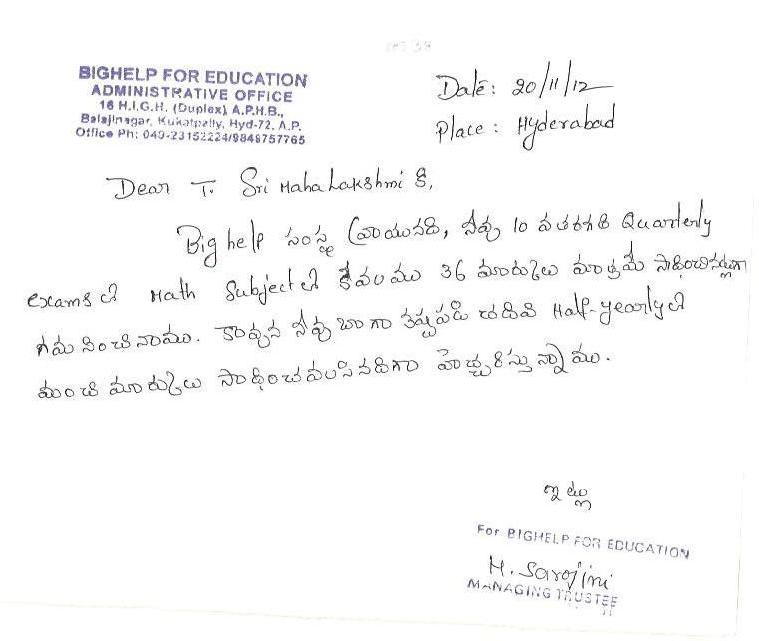 BIGHELP FOR EDUCATION
ADMINISTRATIVE OFFICE
16 H.I.G.H. (Duplex) A.P.H.B.,
Balajinagar, Kukatpally, Hyd-72, A.P.
Office Ph: 040-23152224/9848757765
Date: 20/11/12
Place: Hyderabad
Dear T. Sri Mahalakshmi కి,
Big help సంస్థ వ్రాయునది, నీవు 10 వ తరగతి Quarterly
exams లో Math Subject లో కేవలము 36 మార్కులు మాత్రమే సాధించినట్లుగా
గమనించినాము. కావున నీవు బాగా కష్టపడి చదివి Half-yearly లో
మంచి మార్కులు సాధించవలసినదిగా హెచ్చరిస్తున్నాము.
ఇట్లు
For BIGHELP FOR EDUCATION
M. Sarojini
MANAGING TRUSTEE